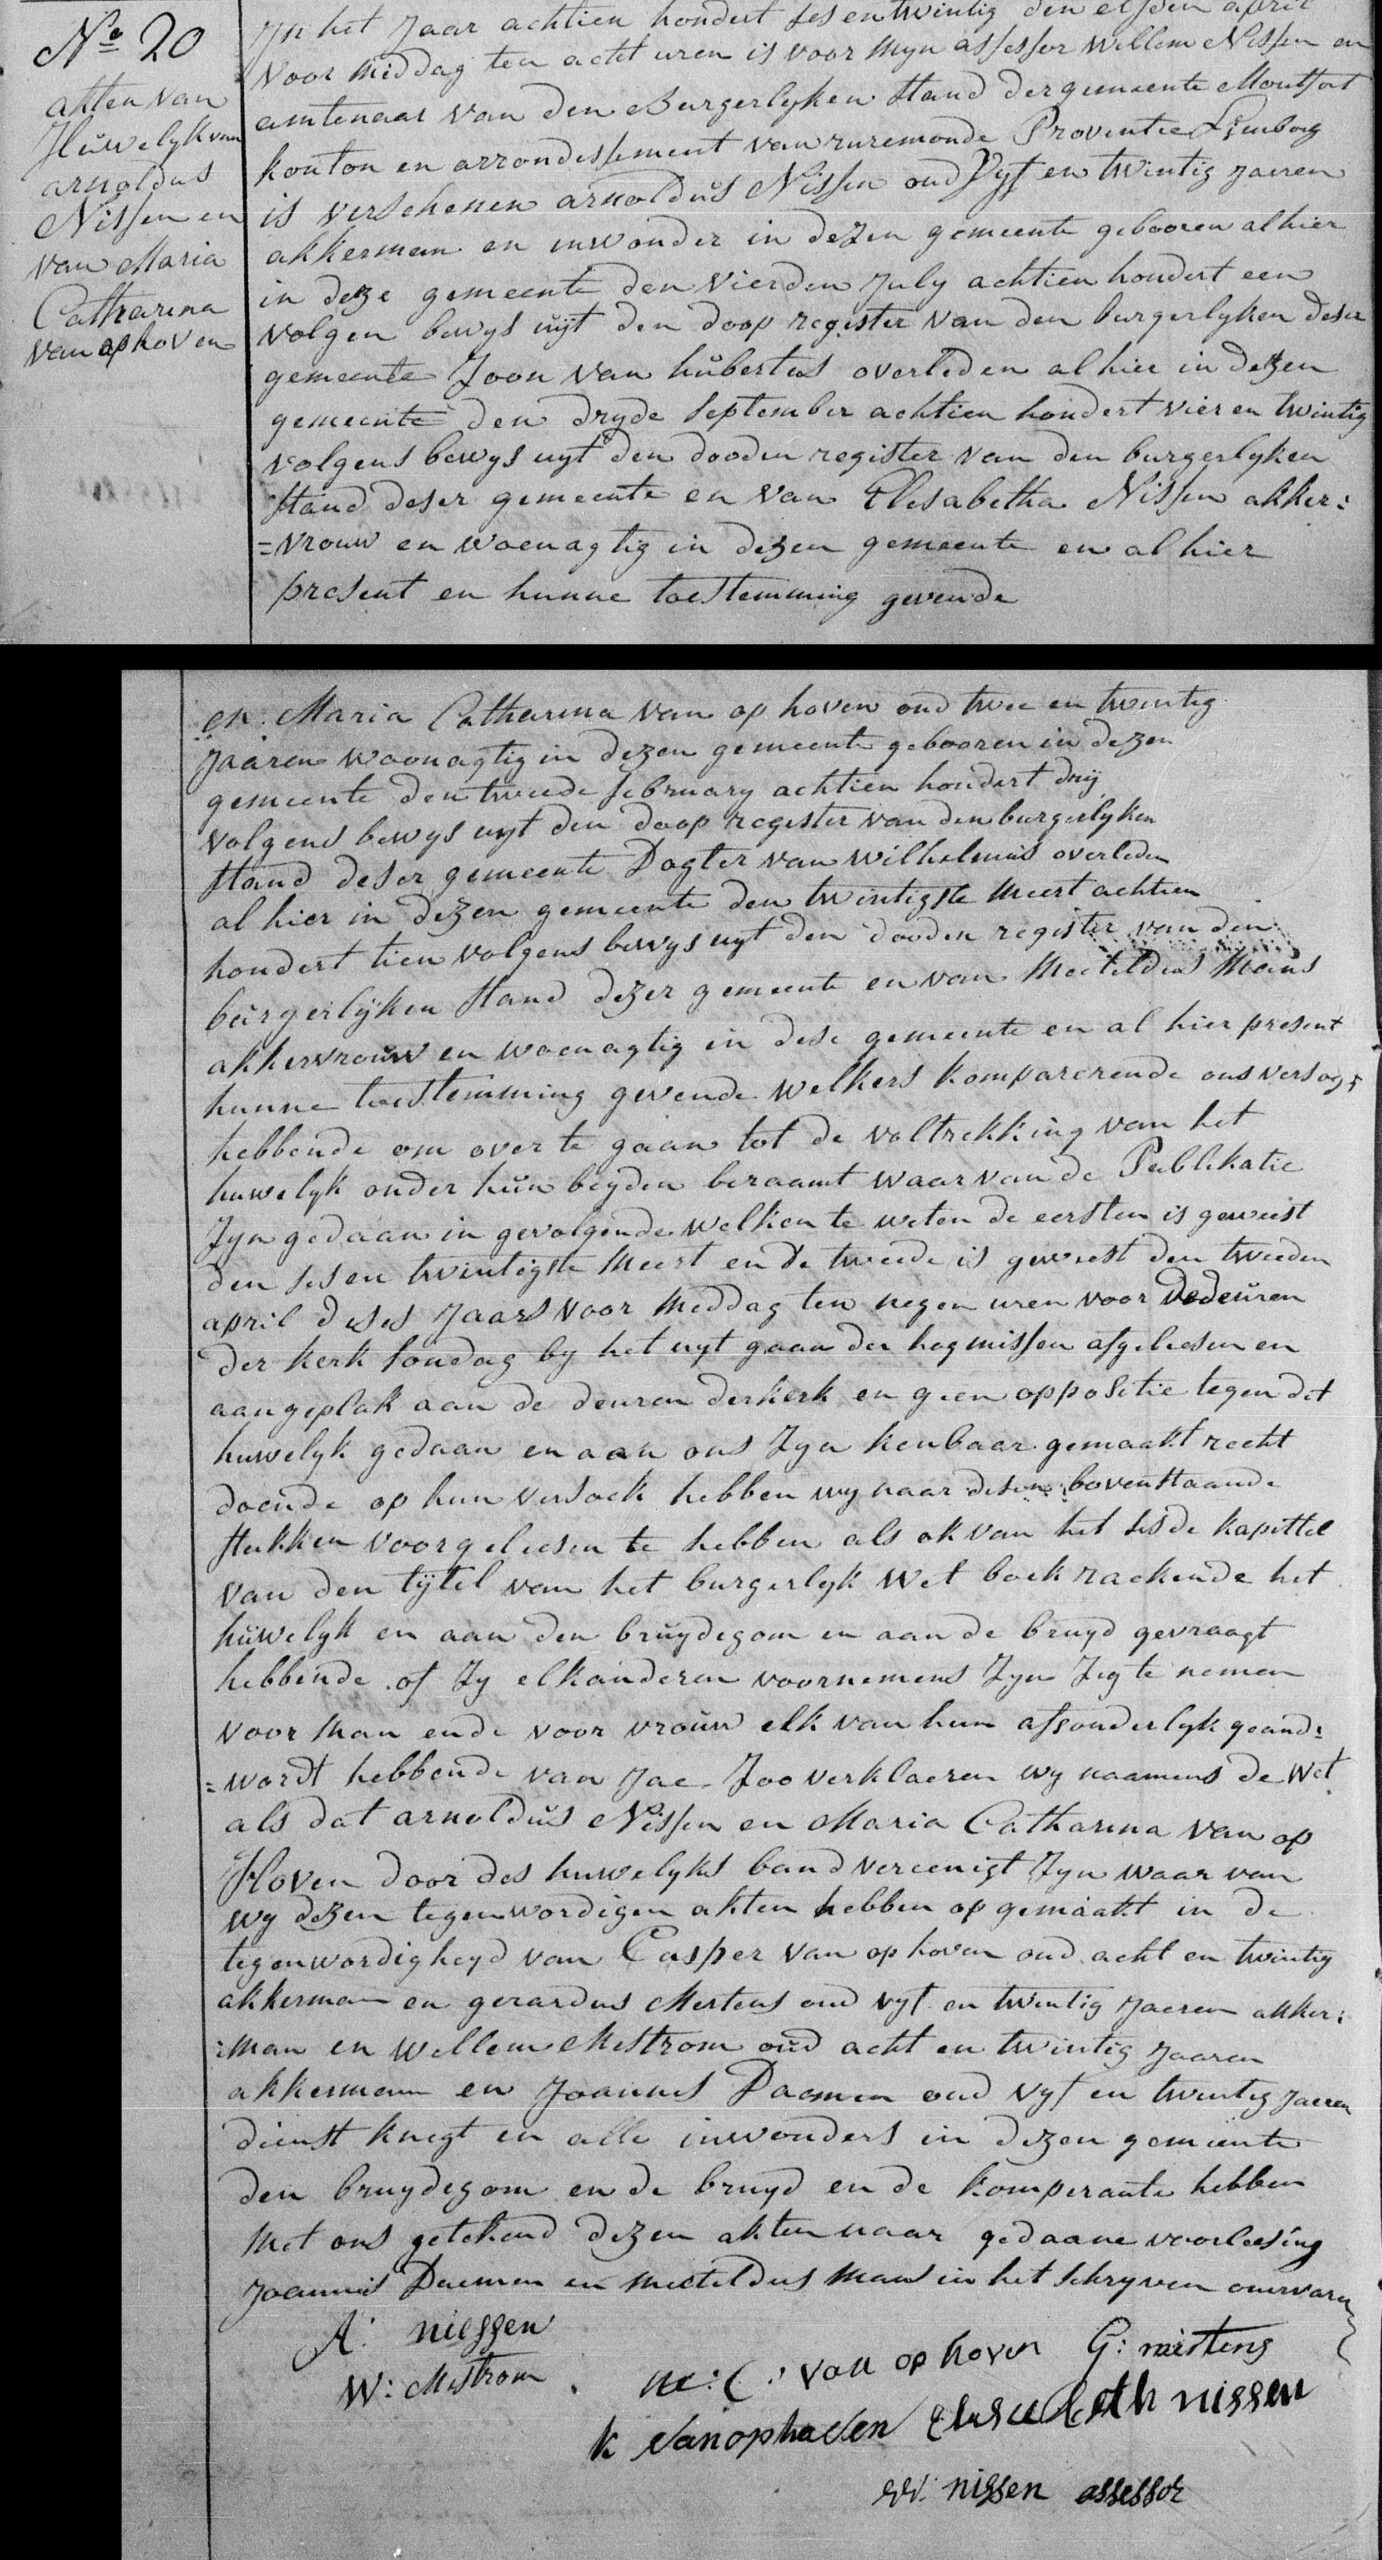 No 20
akten van
Huwelyk van
arnoldus
Nissen en
van Maria
Catharina
van ophoven
Jn het Jaar achtien hondert ses en twintig den elfden april
voor middag ten acht uren is voor myn assessor Willem Nissen en
amtenaar van den Burgerlyken Stand der gemeente Montfort
konton en arrondissement van ruremonde Provintie Limborg
is verschenen arnoldus Nissen oud Vyf en twintig Jaeren
akkerman en inwonder in dezen gemeente gebooren alhier
in deze gemeente den vierden July achtien hondert een
volgen bewys uyt den doop register van den burgerlyken deser
gemeente Zoon van hubertus overleden alhier in dezen
gemeente den dryde september achtien hondert vier en twintig
volgens bewys uyt den dooden register van den burgerlyken
Stand deser gemeente en van Elesabetha Nissen akker:
=vrouw en woenagtig in dezen gemeente en alhier
present en hunne toestemming gevende
en. Maria Catharina van op hoven oud twee en twintig
Jaaren woonagtig in dezen gemeente gebooren in dezen
gemeente den tweede february achtien hondert drij
volgens bewys uyt den doop register van den burgerlyken
Stand deser gemeente Dogter van Wilhelmus overleden
al hier in dezen gemeente den twintigste Meert achtien
hondert tien volgens bewys uyt den dooden register van den
burgerlijken Stand dezer gemeente en van Mecteldus Maus
akkervrouw en woenagtig in dese gemeente en al hier present
hunne toestemming gevende welkers komparerende ons versogt
hebbende om over te gaan tot de voltrekking van het
huwelyk onder hun beyden beraamt waar van de Publikatie
Zyn gedaan in gevolgende welken te weten de eersten is geweest
den ses en twintigste Meert en de tweede is geweest den tweeden
april deses Jaars voor middag ten negen uren voor de deuren
der kerk sondag by het uyt gaan der hogmissen afgeleesen en
aangeplak aan de deuren der kerk en geen oppositie tegen dit
huwelyk gedaan en aan ons Zyn kenbaar gemaakt recht
doende op hun versoek hebben wy naar desen bovenstaande
stukken voorgeleesen te hebben als ok van het sesde kapittel
van den tijtel van het burgerlyk wet boek raekende het
huwelyk en aan den bruydegom en aan de bruyd gevraagt
hebbende of Zy elkanderen voornemens Zyn Zig te nemen
voor man ende voor vrouw elk van hun afsonderlyk geand:
=wordt hebbende van Jae Zoo verklaeren wy naamens de wet
als dat arnoldus Nissen en Maria Catharina van op
Hoven door des huwelyks band vereenigt Zyn waar van
wy dezen tegenwordigen akten hebben op gemaakt in de
tegenwordigheyd van Casper van op hoven oud acht en twintig
akkerman en gerardus Mertens oud vyf en twintig Jaeren akker:
:man en Wellem Mestrom oud acht en twintig Jaaren
akkermann en Joannes Daemen oud vyf en twintig Jaeren
dienst knegt en alle inwonders in dezen gemeente
den bruydegom en de bruyd en de komperante hebben
met ons getekend dezen akten naar gedaane voorleesing
Joannis Daemen en mecteldus maus in het schryven onervaren
A: niessen
W: Mestrom
M: C: van op hoven G: mertens
k vanophoven Elisabeth nissen
W. nissen assessor